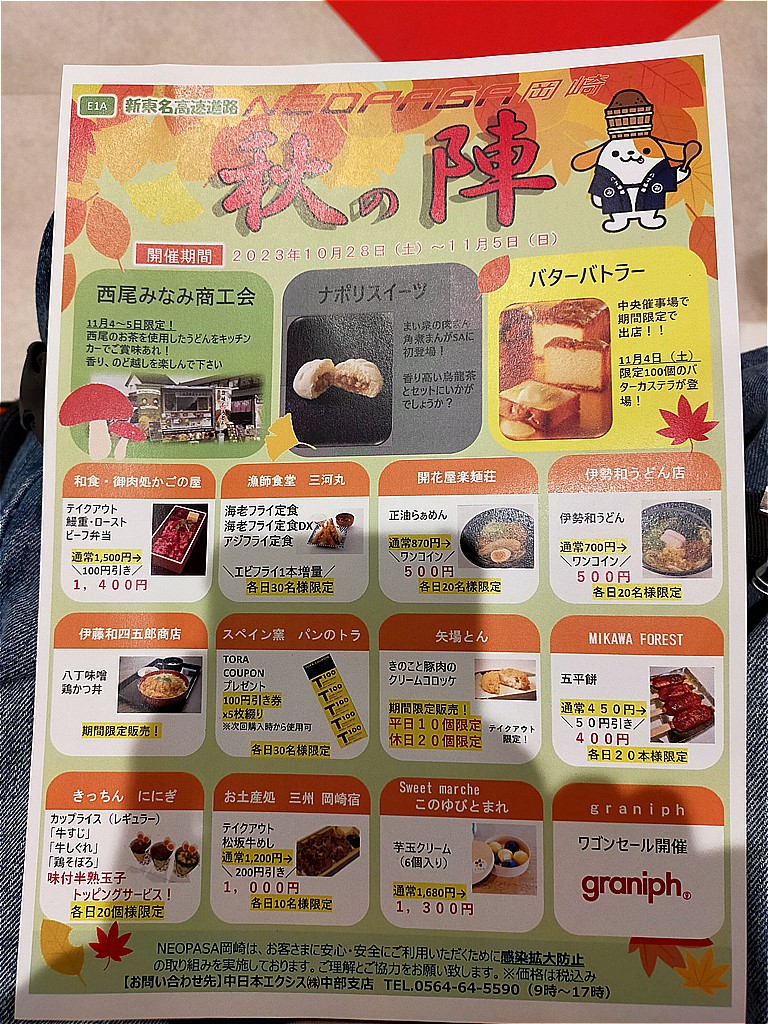 E1A 新東名高速道路 NEOPASA岡崎
秋の陣
開催期間 2023年10月28日（土）～11月5日（日）
西尾みなみ商工会
11月4～5日限定！
西尾のお茶を使用したうどんをキッチン
カーでご賞味あれ！
香り、のど越しを楽しんで下さい
ナポリスイーツ
まい泉の黒豚
角煮まんがSAに
初登場！
香り高い烏龍茶
とセットにいかが
でしょうか？
バターバトラー
中央催事場で
期間限定で
出店！！
11月4日（土）
限定100個のバ
ターカステラが登
場！
和食・御肉処かごの屋
テイクアウト
鰻重・ロースト
ビーフ弁当
通常1,500円→
＼100円引き／
1，400円
漁師食堂 三河丸
海老フライ定食
海老フライ定食DX
アジフライ定食
＼エビフライ1本増量／
各日30名様限定
開花屋楽麺荘
正油らぁめん
通常870円→
＼ワンコイン／
500円
各日20名様限定
伊勢和うどん店
伊勢和うどん
通常700円→
＼ワンコイン／
500円
各日20名様限定
伊藤和四五郎商店
八丁味噌
鶏かつ丼
期間限定販売！
スペイン窯 パンのトラ
TORA
COUPON
プレゼント
100円引き券
x5枚綴り
※次回購入時から使用可
各日30名様限定
T100
T100
T100
T100
T100
矢場とん
きのこと豚肉の
クリームコロッケ
期間限定販売！
平日10個限定
休日20個限定
テイクアウト
限定！
MIKAWA FOREST
五平餅
通常450円→
＼50円引き／
400円
各日20本様限定
きっちん ににぎ
カップライス（レギュラー）
「牛すじ」
「牛しぐれ」
「鶏そぼろ」
味付半熟玉子
トッピングサービス！
各日20個様限定
お土産処 三州 岡崎宿
テイクアウト
松坂牛めし
通常1,200円→
＼200円引き／
1，000円
各日10名様限定
Sweet marche
このゆびとまれ
芋玉クリーム
（6個入り）
通常1,680円→
1，300円
graniph
ワゴンセール開催
graniph
NEOPASA岡崎は、お客さまに安心・安全にご利用いただくために感染拡大防止
の取り組みを実施しております。ご理解とご協力をお願い致します。※価格は税込み
【お問い合わせ先】中日本エクシス㈱中部支店 TEL.0564-64-5590（9時～17時）